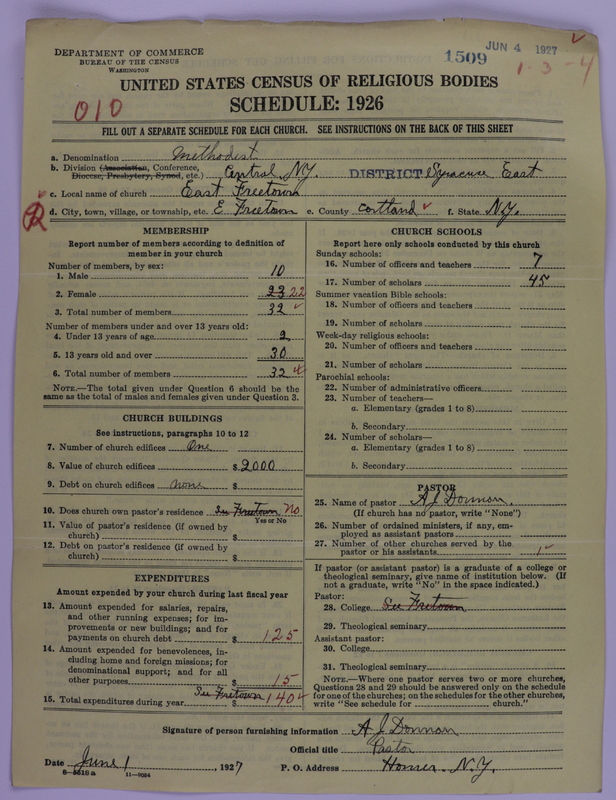 DEPARTMENT OF COMMERCE
BUREAU OF THE CENSUS
WASHINGTON
1509 JUN 4 1927
1-3-4
UNITED STATES CENSUS OF RELIGIOUS BODIES
010
SCHEDULE: 1926
FILL OUT A SEPARATE SCHEDULE FOR EACH CHURCH. SEE INSTRUCTIONS ON THE BACK OF THIS SHEET
a. Denomination Methodist
b. Division (Association, Conference, Diocese, Presbytery, Synod, etc.) Central N.Y. DISTRICT Syracuse East
c. Local name of church East Freetown
d. City, town, village, or township, etc. E. Freetown e. County Cortland f. State N.Y.
MEMBERSHIP
Report number of members according to definition of
member in your church
Number of members, by sex:
1. Male 10
2. Female 23 22
3. Total number of members 32
Number of members under and over 13 years old:
4. Under 13 years of age 2
5. 13 years old and over 30
6. Total number of members 32
NOTE.—The total given under Question 6 should be the
same as the total of males and females given under Question 3.
CHURCH BUILDINGS
See instructions, paragraphs 10 to 12
7. Number of church edifices One
8. Value of church edifices $2000
9. Debt on church edifices none $
10. Does church own pastor's residence See Freetown No
Yes or No
11. Value of pastor's residence (if owned by
church) $
12. Debt on pastor's residence (if owned by
church) $
EXPENDITURES
Amount expended by your church during last fiscal year
13. Amount expended for salaries, repairs,
and other running expenses; for im-
provements or new buildings; and for
payments on church debt $ 125
14. Amount expended for benevolences, in-
cluding home and foreign missions; for
denominational support; and for all
other purposes $ 15
15. Total expenditures during year See Freetown $ 140
CHURCH SCHOOLS
Report here only schools conducted by this church
Sunday schools:
16. Number of officers and teachers 7
17. Number of scholars 45
Summer vacation Bible schools:
18. Number of officers and teachers
19. Number of scholars
Week-day religious schools:
20. Number of officers and teachers
21. Number of scholars
Parochial schools:
22. Number of administrative officers
23. Number of teachers—
a. Elementary (grades 1 to 8)
b. Secondary
24. Number of scholars—
a. Elementary (grades 1 to 8)
b. Secondary
PASTOR
25. Name of pastor A J Donnan.
(If church has no pastor, write "None")
26. Number of ordained ministers, if any, em-
ployed as assistant pastors
27. Number of other churches served by the
pastor or his assistants 1
If pastor (or assistant pastor) is a graduate of a college or
theological seminary, give name of institution below. (If
not a graduate, write "No" in the space indicated.)
Pastor:
28. College See Freetown
29. Theological seminary
Assistant pastor:
30. College
31. Theological seminary
NOTE.—Where one pastor serves two or more churches,
Questions 28 and 29 should be answered only on the schedule
for one of the churches; on the schedules for the other churches,
write "See schedule for church."
Signature of person furnishing information A J Donnan
Official title Pastor
Date June 1, 1927 P. O. Address Homer N.Y.
8-5518a 11-9054